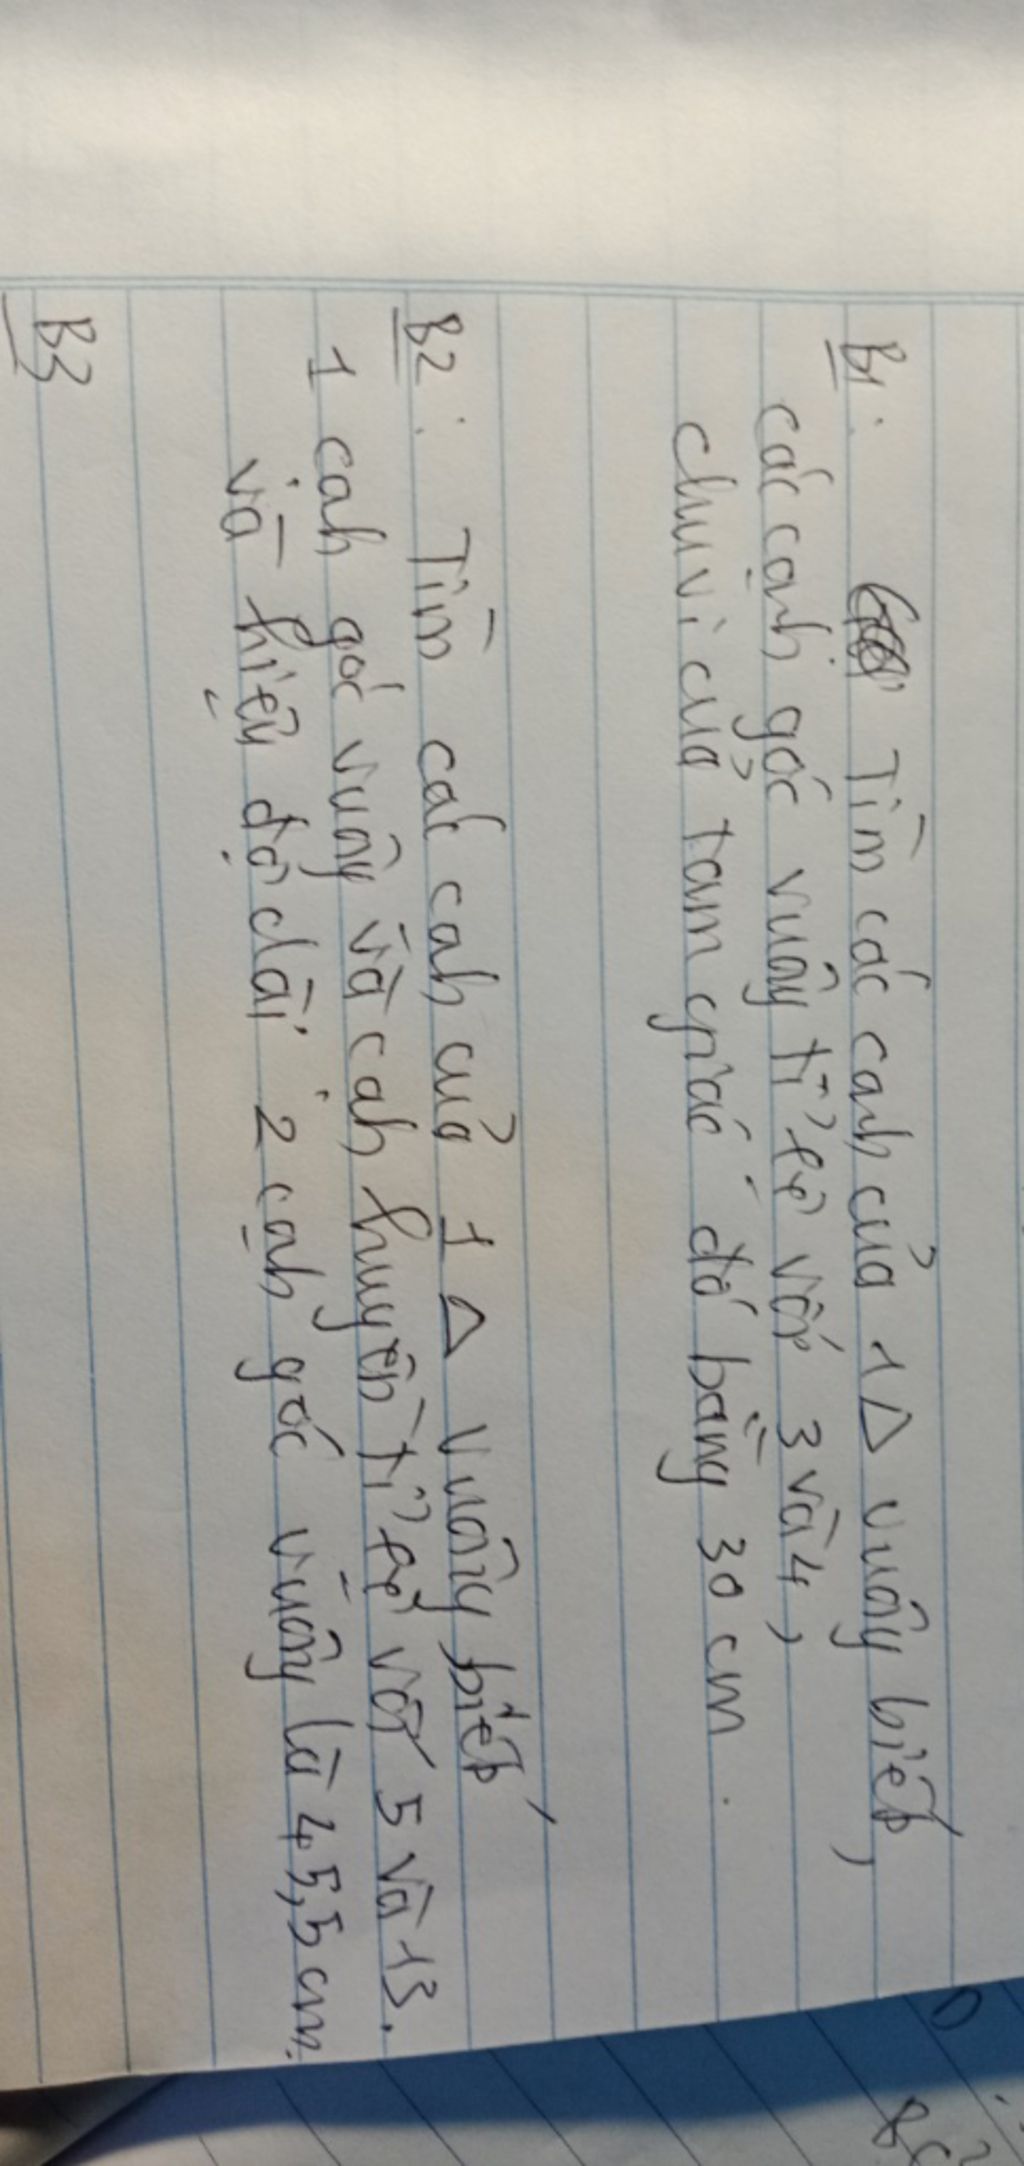 B1: Tìm các cạnh của 1 Δ vuông biết,
các cạnh góc vuông tỉ lệ với 3 và 4,
chu vi của tam giác đó bằng 30 cm.
B2: Tìm các cạnh của 1 Δ vuông biết
1 cạnh góc vuông và cạnh huyền tỉ lệ với 5 và 13.
và hiệu độ dài 2 cạnh góc vuông là 45,5 cm.
B3